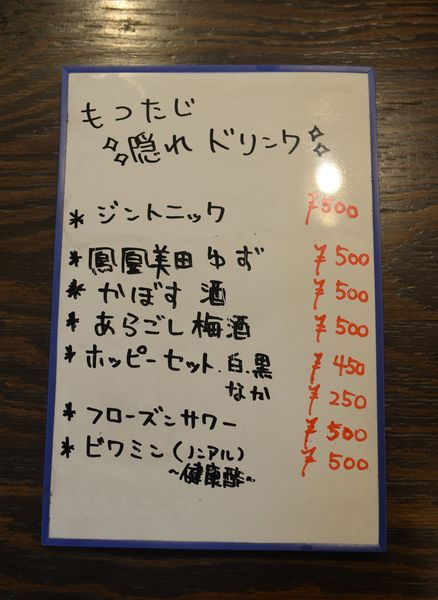 もつたじ
隠れドリンク
* ジントニック ¥500
* 鳳凰美田ゆず ¥500
* かぼす酒 ¥500
* あらごし梅酒 ¥500
* ホッピーセット.白.黒 ¥450
なか ¥250
* フローズンサワー ¥500
* ビワミン(ノンアル) ¥500
～健康酢～